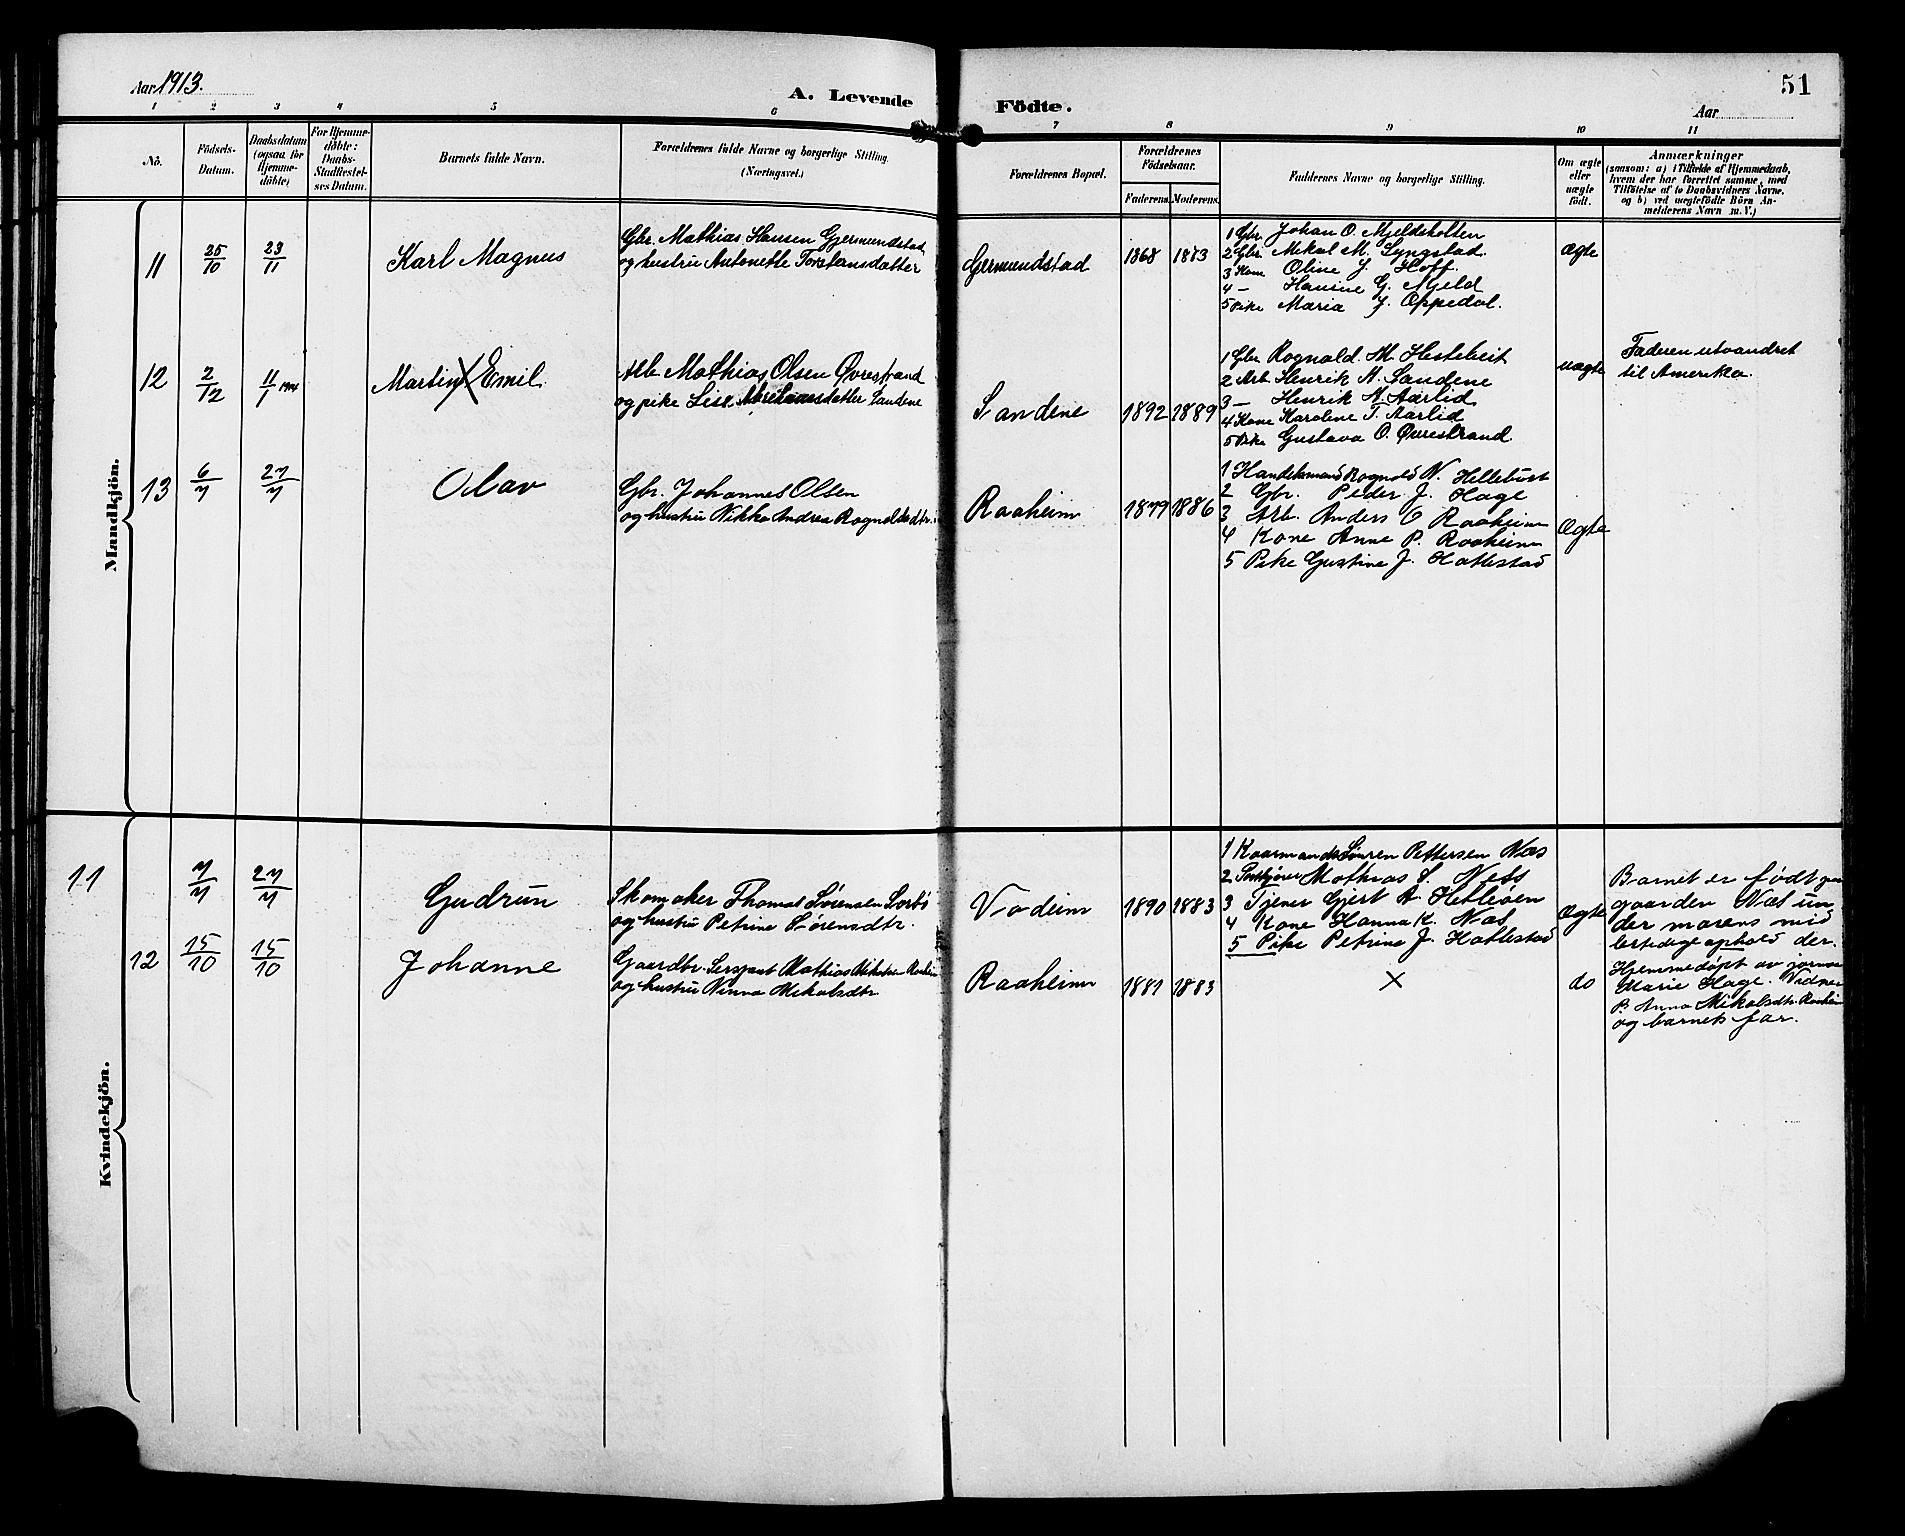 Aar 1913.
A. Levende Födte.
51
Aar
1 2 3 4 5 6 7 8 9 10 11
No.
Födsels-
Datum.
Daabsdatum
(ogsaa for
Hjemme-
döbte)
For Hjemme-
döbte:
Daabs-
Stadfæstel-
ses Datum.
Barnets fulde Navn.
Forældrenes fulde Navne og borgerlige Stilling.
(Næringsvei.)
Forældrenes Bopæl.
Forældrenes
Födselsaar.
Faderens Moderens
Faddernes Navne og borgerlige Stilling.
Om ægte
eller
uægte
födt.
Anmærkninger
(saasom: a) i Tilfælde af Hjemmedaab,
hvem der har forrettet samme, med
Tilföielse af to Daabsvidners Navne,
og b) ved uægtefödte Börn An-
melderens Navn m. V.)
Mandkjön.
11 25/10 23/11 Karl Magnus
Gbr. Mathias Hansen Gjermundstad
og hustru Antonette Torsteinsdatter
Germundstad 1868 1873
1 Gbr. Johan O. Mjeldeholten
2 Gbr. Mikal M. Lyngstad
3 Kone Oline J. Hoff.
4 — Hansine G. Mjeld
5 Pike Maria J. Oppedal.
Ægte
12 2/12 11/1 1914 Martin X Emil
Arb Mathias Olsen Øvrestrand
og pike Lise Abrahamsdatter Sandene
Sandene 1892 1889
1 Gbr Rognald. M. Hestebeit
2 Arb Henrik A. Sandene
3 — Henrik A. Aarlid
4 Kone Karolene T. Aarlid
5 Pike Gustava O. Øvrestrand.
uægte
Faderen utvandret
til Amerika.
13 6/7 27/7 Olav
Gbr. Johannes Olsen
og hustru Nikka Andrea Rognaldsdtr.
Raaheim 1879 1886
1 Handelsmand Rognald N. Hellebust
2 Gbr. Peder J. Hage
3 Arb. Anders O Raaheim
4 Kone Anne P. Raaheim
5 Pike Gustine J. Hatlestad
Ægte
Kvindekjön.
11 7/7 27/7 Gudrun
Skomaker Thomas Sørensen Sorbø
og hustru Petrine Sørensdtr.
Vadeim 1890 1883
1 Kaarmand Søuren Pettersen Næs
2 Mathias S. Ness
3 Tjener Gjert A Hetleøen
4 Kone Hanna K. Næs
5 Pike Petrine J. Hatlestad
Ægte
Barnet er født paa
gaarden Næs un-
der morens mid
lertidige ophold der.
12 15/10 15/10 Johanne
Gaardbr. Sersjant Mathias Mikalsen Raaheim
og hustru Ninna Mikalsdtr
Raaheim 1881 1883
X
do
Hjemmedøpt av jormor
Marie Hage. Vidner
P. Anna Mikalsdtr. Raaheim
og barnets far.